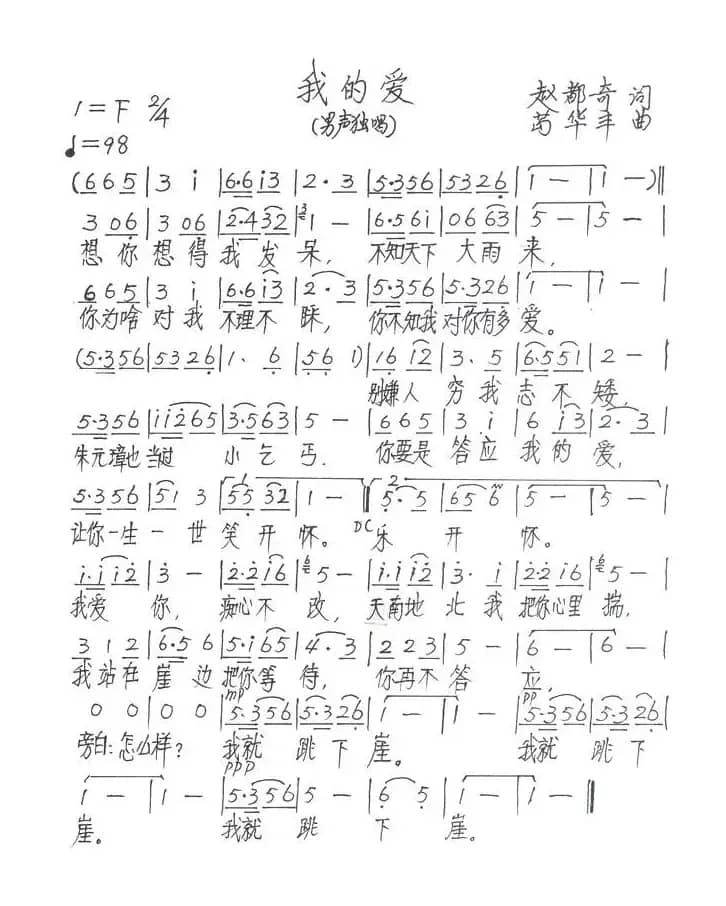 我的爱
(男声独唱)
1=F 2/4
♩=98
赵都奇 词
苟华丰 曲
(6 6 5 | 3 i | 6·6 i3 | 2·3 | 5·356 | 5326 | 1 — | 1 —)‖
3 06 | 3 06 | 2·432 | 1 — | 6·561 | 06 63 | 5 — | 5 — |
想你想得我发呆, 不知天下大雨来,
6 6 5 | 3 i | 6·6 i3 | 2·3 | 5·356 | 5·326 | 1 — | 1 — |
你为啥对我不理不睬, 你不知我对你有多爱。
(5·356 | 5326 | 1、 6 | 56 1) | 16 i2 | 3、5 | 6·551 | 2 — |
别嫌人穷我志不矮,
5·356 | ii265 | 3·563 | 5 — | 6 6 5 | 3 i | 6 i3 | 2·3 |
朱元璋也当过小乞丐. 你要是答应我的爱,
5·356 | 51 3 | 55 32 | 1 — ‖ 5·5 | 65 6 | 5 — | 5 — |
让你一生一世笑开怀。 DC 乐开怀。
i·i i2 | 3 — | 2·2 i6 | 5 — | i·i i2 | 3· i | 2·2 i6 | 5 — |
我爱你, 痴心不改, 天南地北我把你心里揣,
3 1 2 | 6·5 6 | 5·i65 | 4·3 | 2 2 3 | 5 — | 6 — | 6 — |
我站在崖边把你等待, 你再不答应,
mp pp
0 0 | 0 0 | 5·356 | 5·326 | 1 — | 1 — | 5·356 | 5·326 |
旁白:怎么样? 我就跳下崖。 我就跳下
ppp
1 — | 1 — | 5·356 | 5 — | 6 5 | 1 — | 1 — ‖
崖。 我就跳下崖。